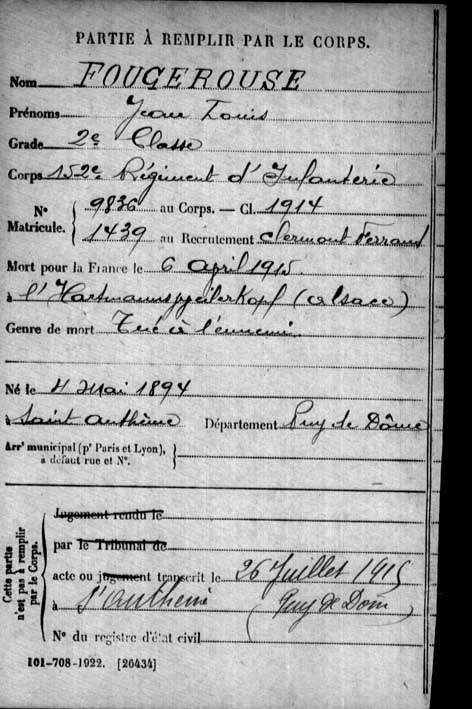 PARTIE À REMPLIR PAR LE CORPS.
Nom FOUGEROUSE
Prénoms Jean Louis
Grade 2e Classe
Corps 152e Régiment d'Infanterie
N° Matricule. { 9836 au Corps. — Cl. 1914
1439 au Recrutement Clermont Ferrand
Mort pour la France le 6 april 1915
à l'Hartmannsweilerkopf (Alsace)
Genre de mort Tué à l'ennemi
Né le 4 Mai 1894
à Saint Anthème Département Puy de Dôme
Arrt municipal (pr Paris et Lyon),
à défaut rue et N°.
Cette partie n'est pas à remplir par le Corps.
Jugement rendu le
par le Tribunal de
acte ou jugement transcrit le 26 Juillet 1915
à St Anthème (Puy de Dôm)
N° du registre d'état civil
101-708-1922. [26434]